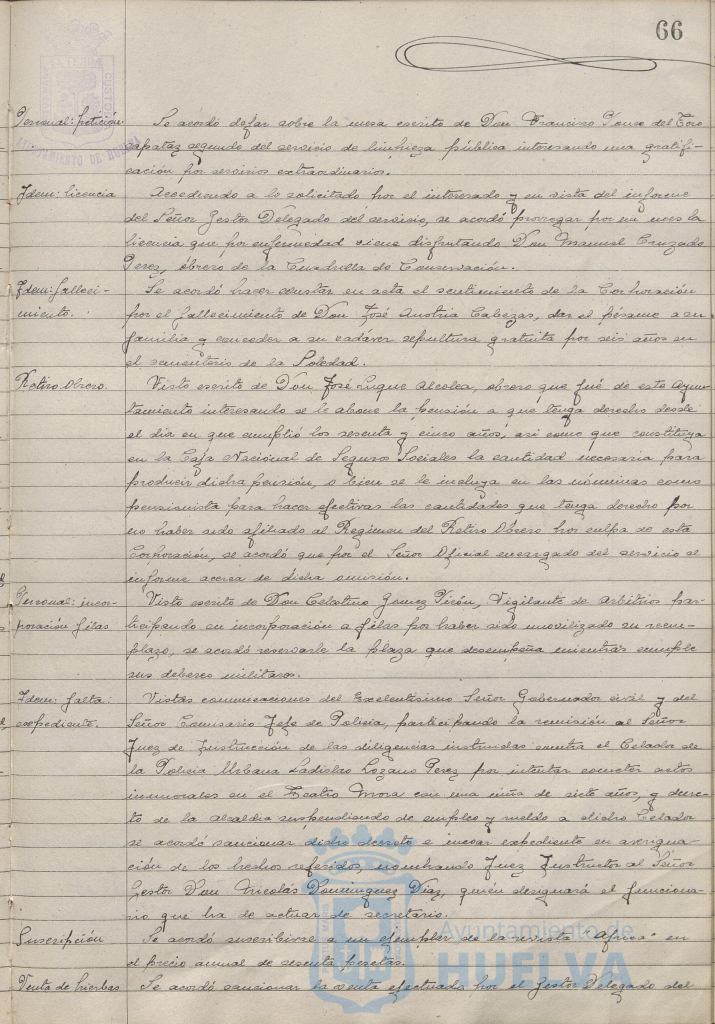 66
Personal: petición. Se acordó dejar sobre la mesa escrito de Don Francisco Ponce del Toro
capataz segundo del servicio de limpieza pública interesando una gratifi-
cación por servicios extraordinarios.
Idem: licencia Accediendo a lo solicitado por el interesado y en vista del informe
del Señor Gestor Delegado del servicio, se acordó prorrogar por un mes la
licencia que por enfermedad viene disfrutando Don Manuel Cruzado
Perez, obrero de la Cuadrilla de Conservación.
Idem: falleci- Se acordó hacer constar en acta el sentimiento de la Corporación
miento. por el fallecimiento de Don José Austria Cabezas, dar el pésame a su
familia y conceder a su cadáver sepultura gratuita por seis años en
el cementerio de la Soledad.
Retiro Obrero. Visto escrito de Don José Luque Alcolea, obrero que fué de este Ayun-
tamiento interesando se le abone la pensión a que tenga derecho desde
el día en que cumplió los sesenta y cinco años, asi como que constituya
en la Caja Nacional de Seguros Sociales la cantidad necesaria para
producir dicha pensión, o bien se le incluya en las nóminas como
pensionista para hacer efectivas las cantidades que tenga derecho por
no haber sido afiliado al Regimen del Retiro Obrero por culpa de esta
Corporación, se acordó que por el Señor Oficial encargado del servicio se
informe acerca de dicha omisión.
Personal: incor- Visto escrito de Don Celestino Gomez Virón, Vigilante de Arbitrios par-
poración filas ticipando su incorporación a filas por haber sido movilizado su reem-
plazo, se acordó reservarle la plaza que desempeña mientras cumple
sus deberes militares.
Idem: falta: Vistas comunicaciones del Excelentísimo Señor Gobernador civil y del
expediente. Señor Comisario Jefe de Policia, participando la remisión al Señor
Juez de Instrucción de las diligencias instruidas contra el Celador de
la Policia Urbana Ladislao Lozano Perez por intentar cometer actos
inmorales en el Teatro Mora con una niña de siete años, y decre-
to de la alcaldia suspendiendo de empleo y sueldo a dicho Celador
se acordó sancionar dicho decreto e incoar expediente en averigua-
ción de los hechos referidos, nombrando Juez Instructor al Señor
Gestor Don Nicolás Dominguez Diaz, quien designará el funciona-
rio que ha de actuar de secretario.
Suscripción Se acordó suscribirse a un ejemplar de la revista "Africa" en
el precio annual de sesenta pesetas.
Venta de hierbas Se acordó sancionar la venta efectuada por el Gestor Delegado del
AYUNTAMIENTO DE HUELVA
Ayuntamiento de
HUELVA